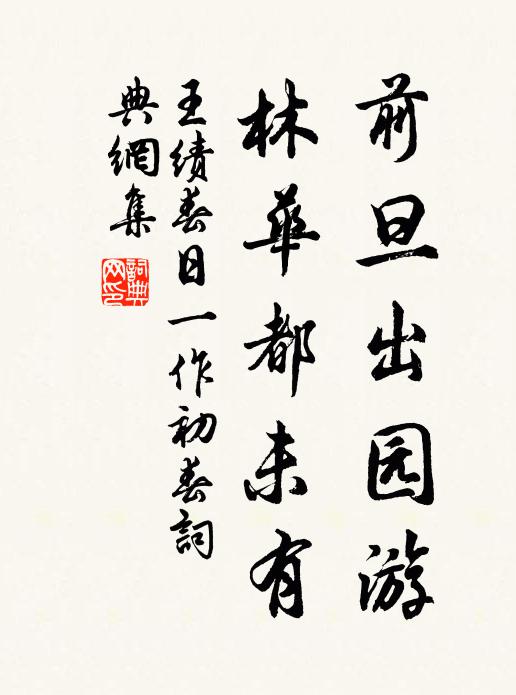 前旦出园游
林華都未有
王績春日一作初春詞
典網集
詞典网印